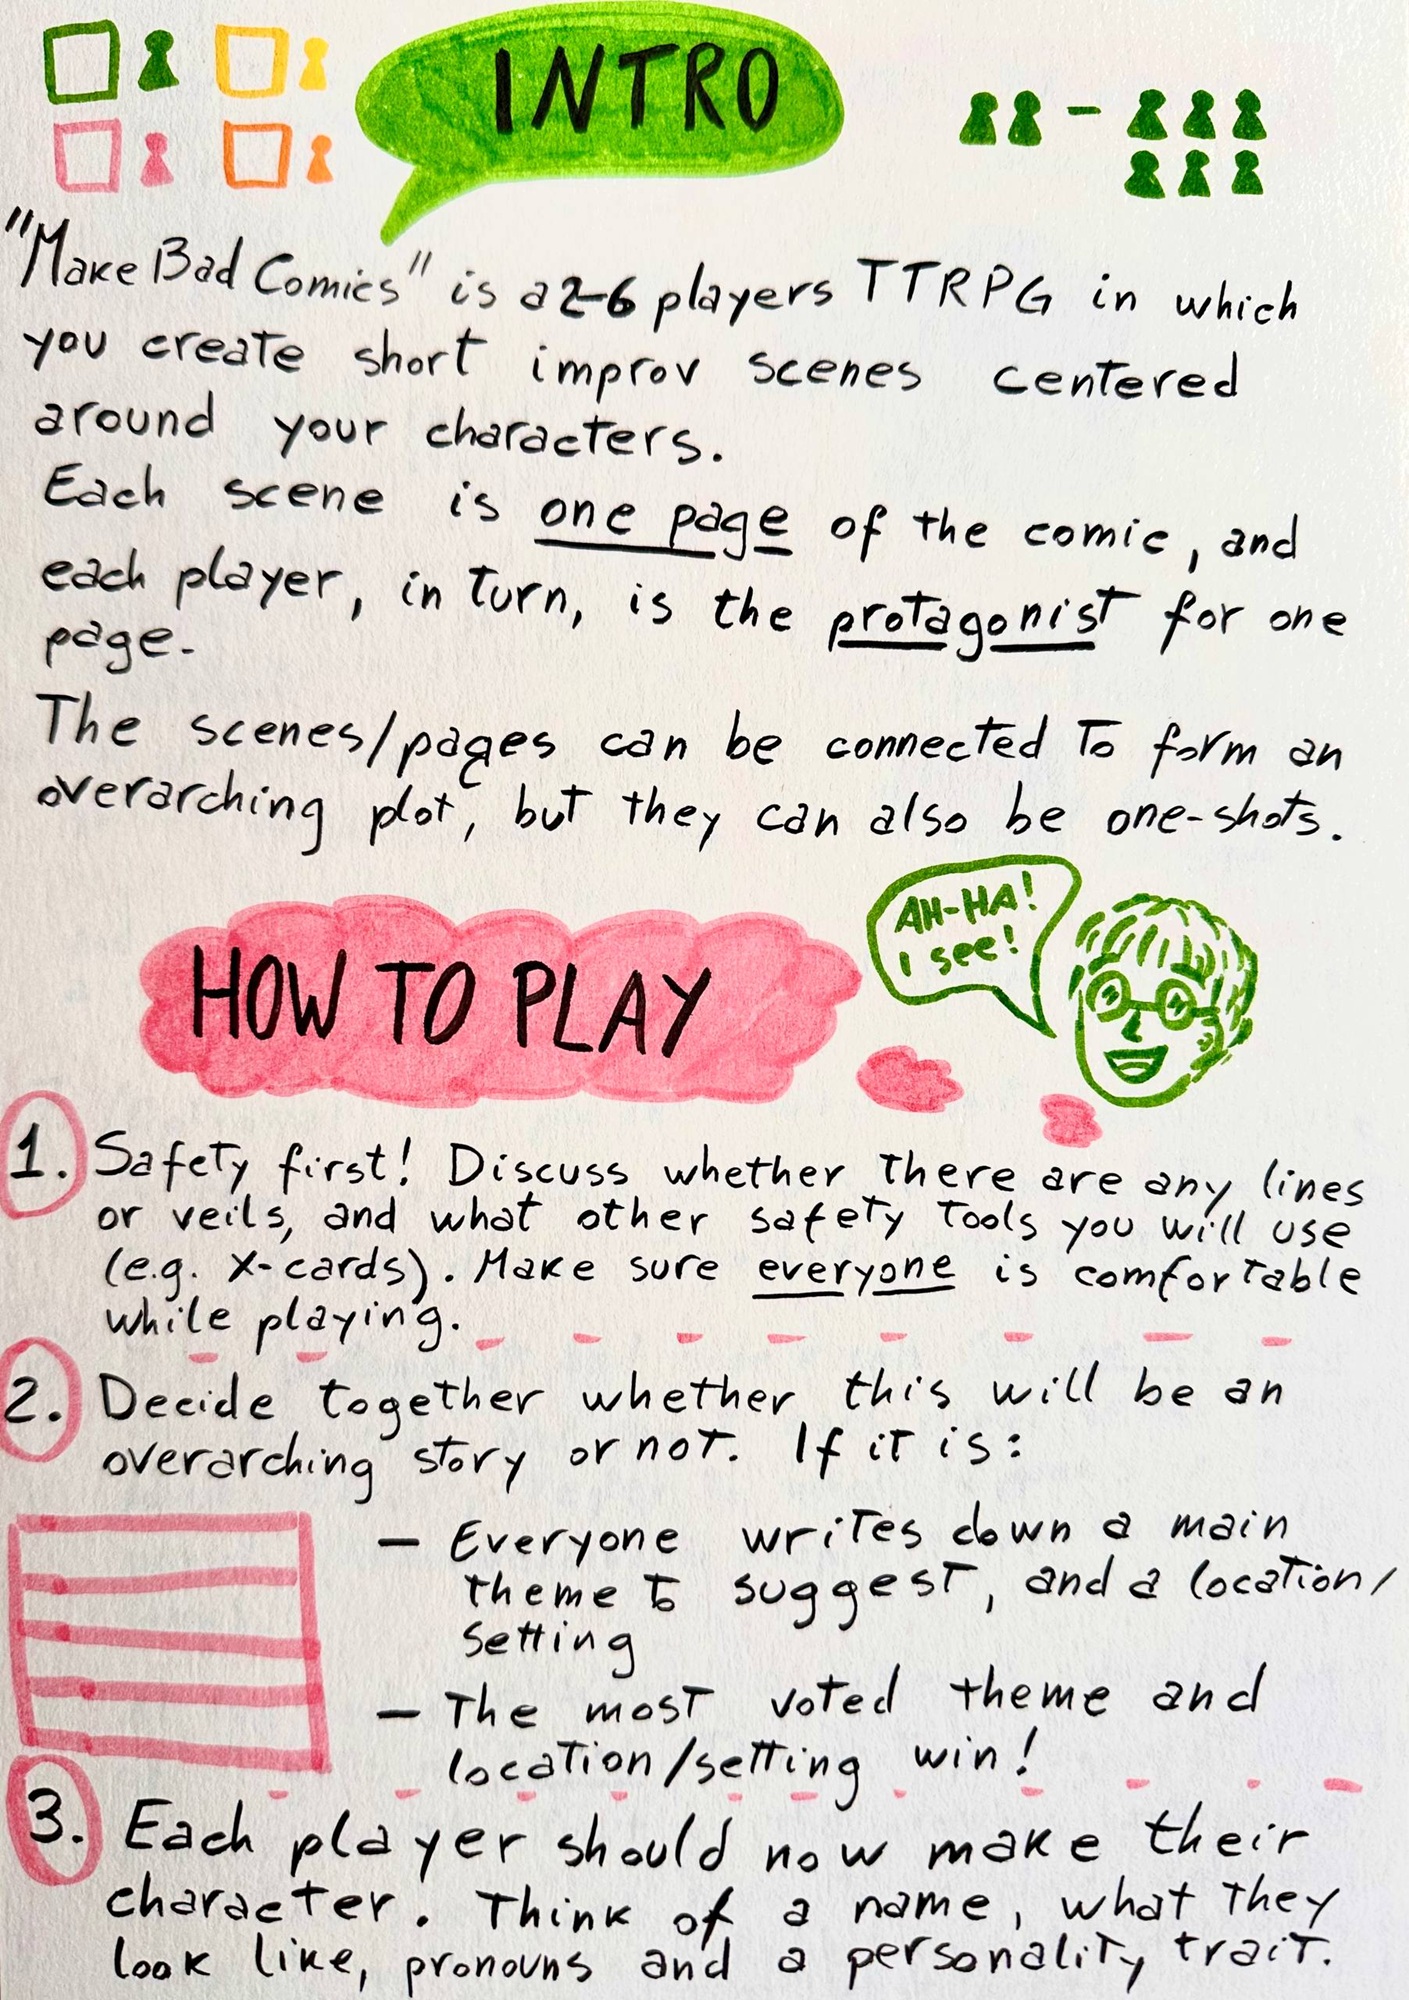 INTRO
"Make Bad Comics" is a 2-6 players TTRPG in which
you create short improv scenes centered
around your characters.
Each scene is one page of the comic, and
each player, in turn, is the protagonist for one
page.
The scenes/pages can be connected to form an
overarching plot, but they can also be one-shots.
AH-HA!
I see!
HOW TO PLAY
1. Safety first! Discuss whether there are any lines
or veils, and what other safety tools you will use
(e.g. X-cards). Make sure everyone is comfortable
while playing.
2. Decide together whether this will be an
overarching story or not. If it is:
- Everyone writes down a main
theme to suggest, and a location/
setting
- The most voted theme and
location/setting win!
3. Each player should now make their
character. Think of a name, what they
look like, pronouns and a personality trait.